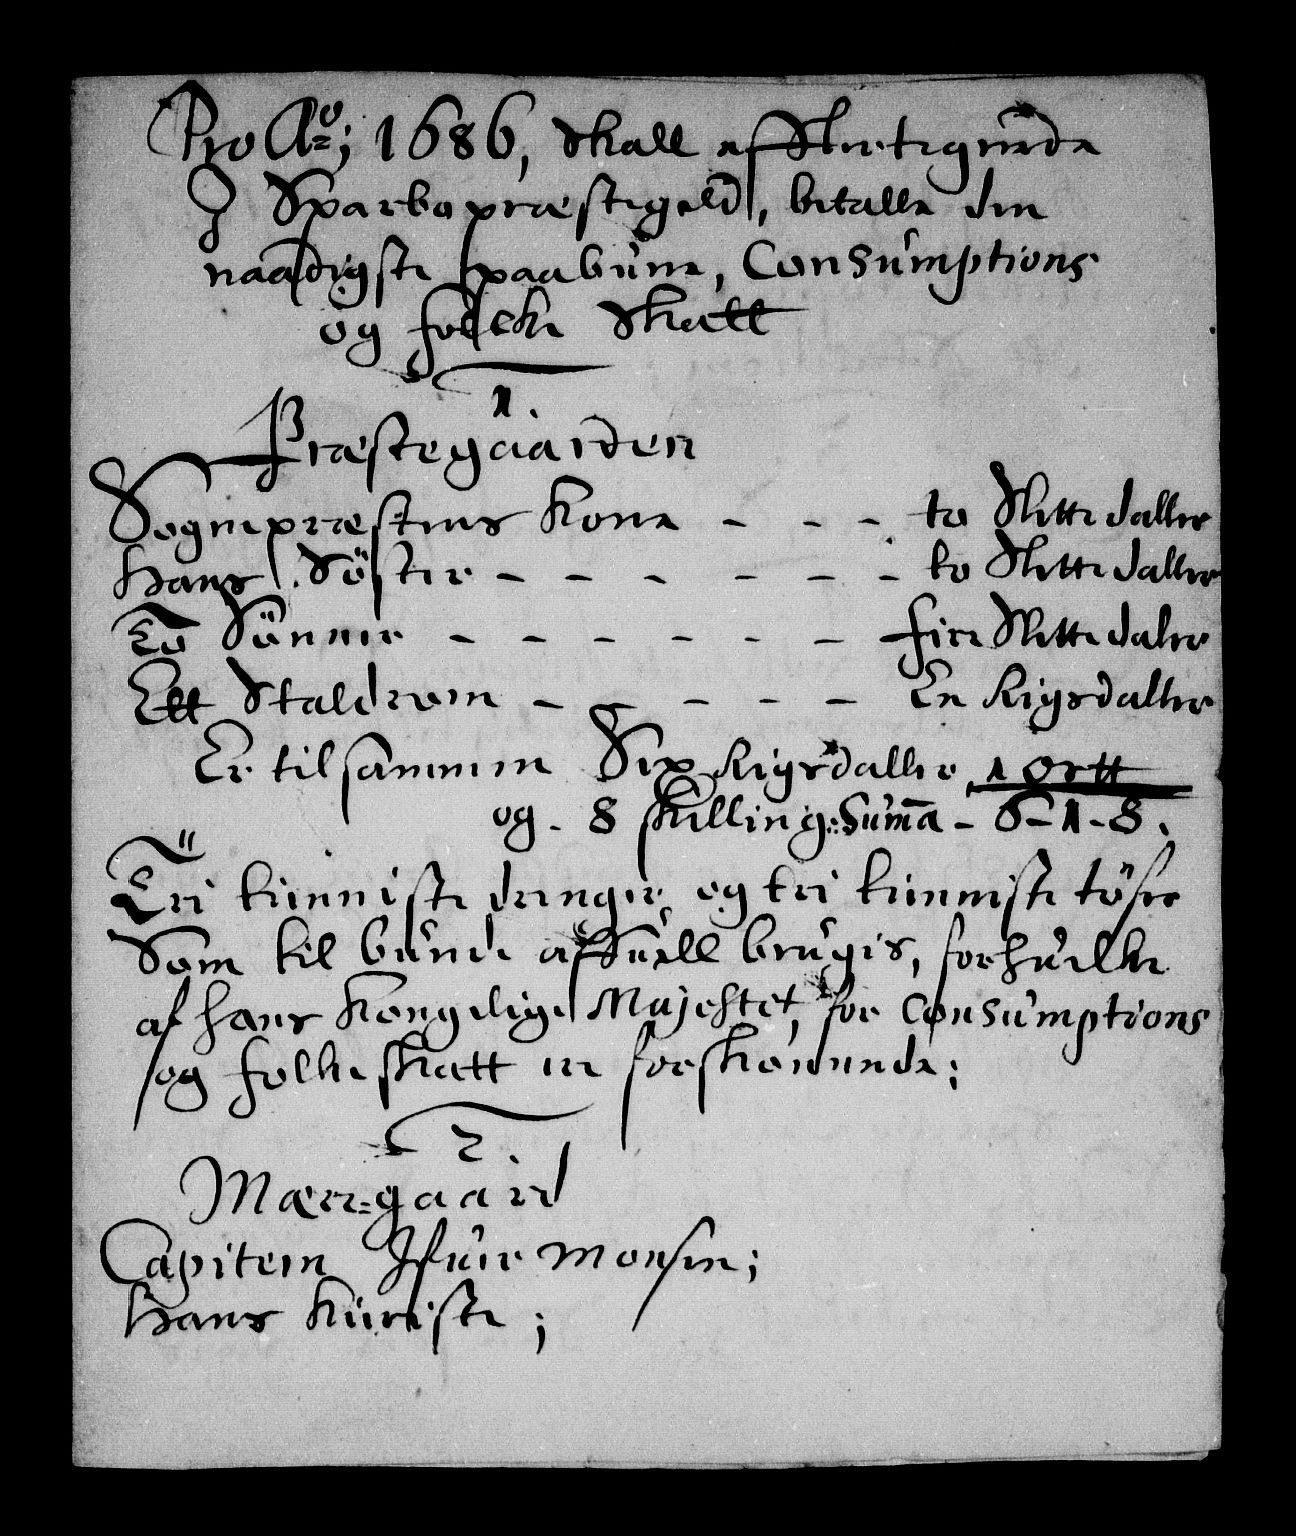 Pro A͞o; 1686, skall aff Skretegrẽda
I Sparbo præstegeld, betalle den
naadigste paabune, Consumptions
og folcke skatt
1.
Præstegaarden
Sognepræstens Kone - - - to Slette daller
Hans Söster - - - - - - to Slette daller
To Sönner - - - - - - fire Slette daler
Ett Staldrom - - - - - En Rigsdaller
Er tilsammen Sex Rigsdaller, 1 ortt
og - 8 skilling: Suma - 6-1-8.
Tri tienniste drenger, og tri tienniste töser
Som til bunde affuell brugis, for huilke
af hans Kongelige Majestet, for Consumptions
og folke skatt er forskonnende;
2.
Mære=gaard
Capitein Ifuer Monsen;
Hans Kieriste;